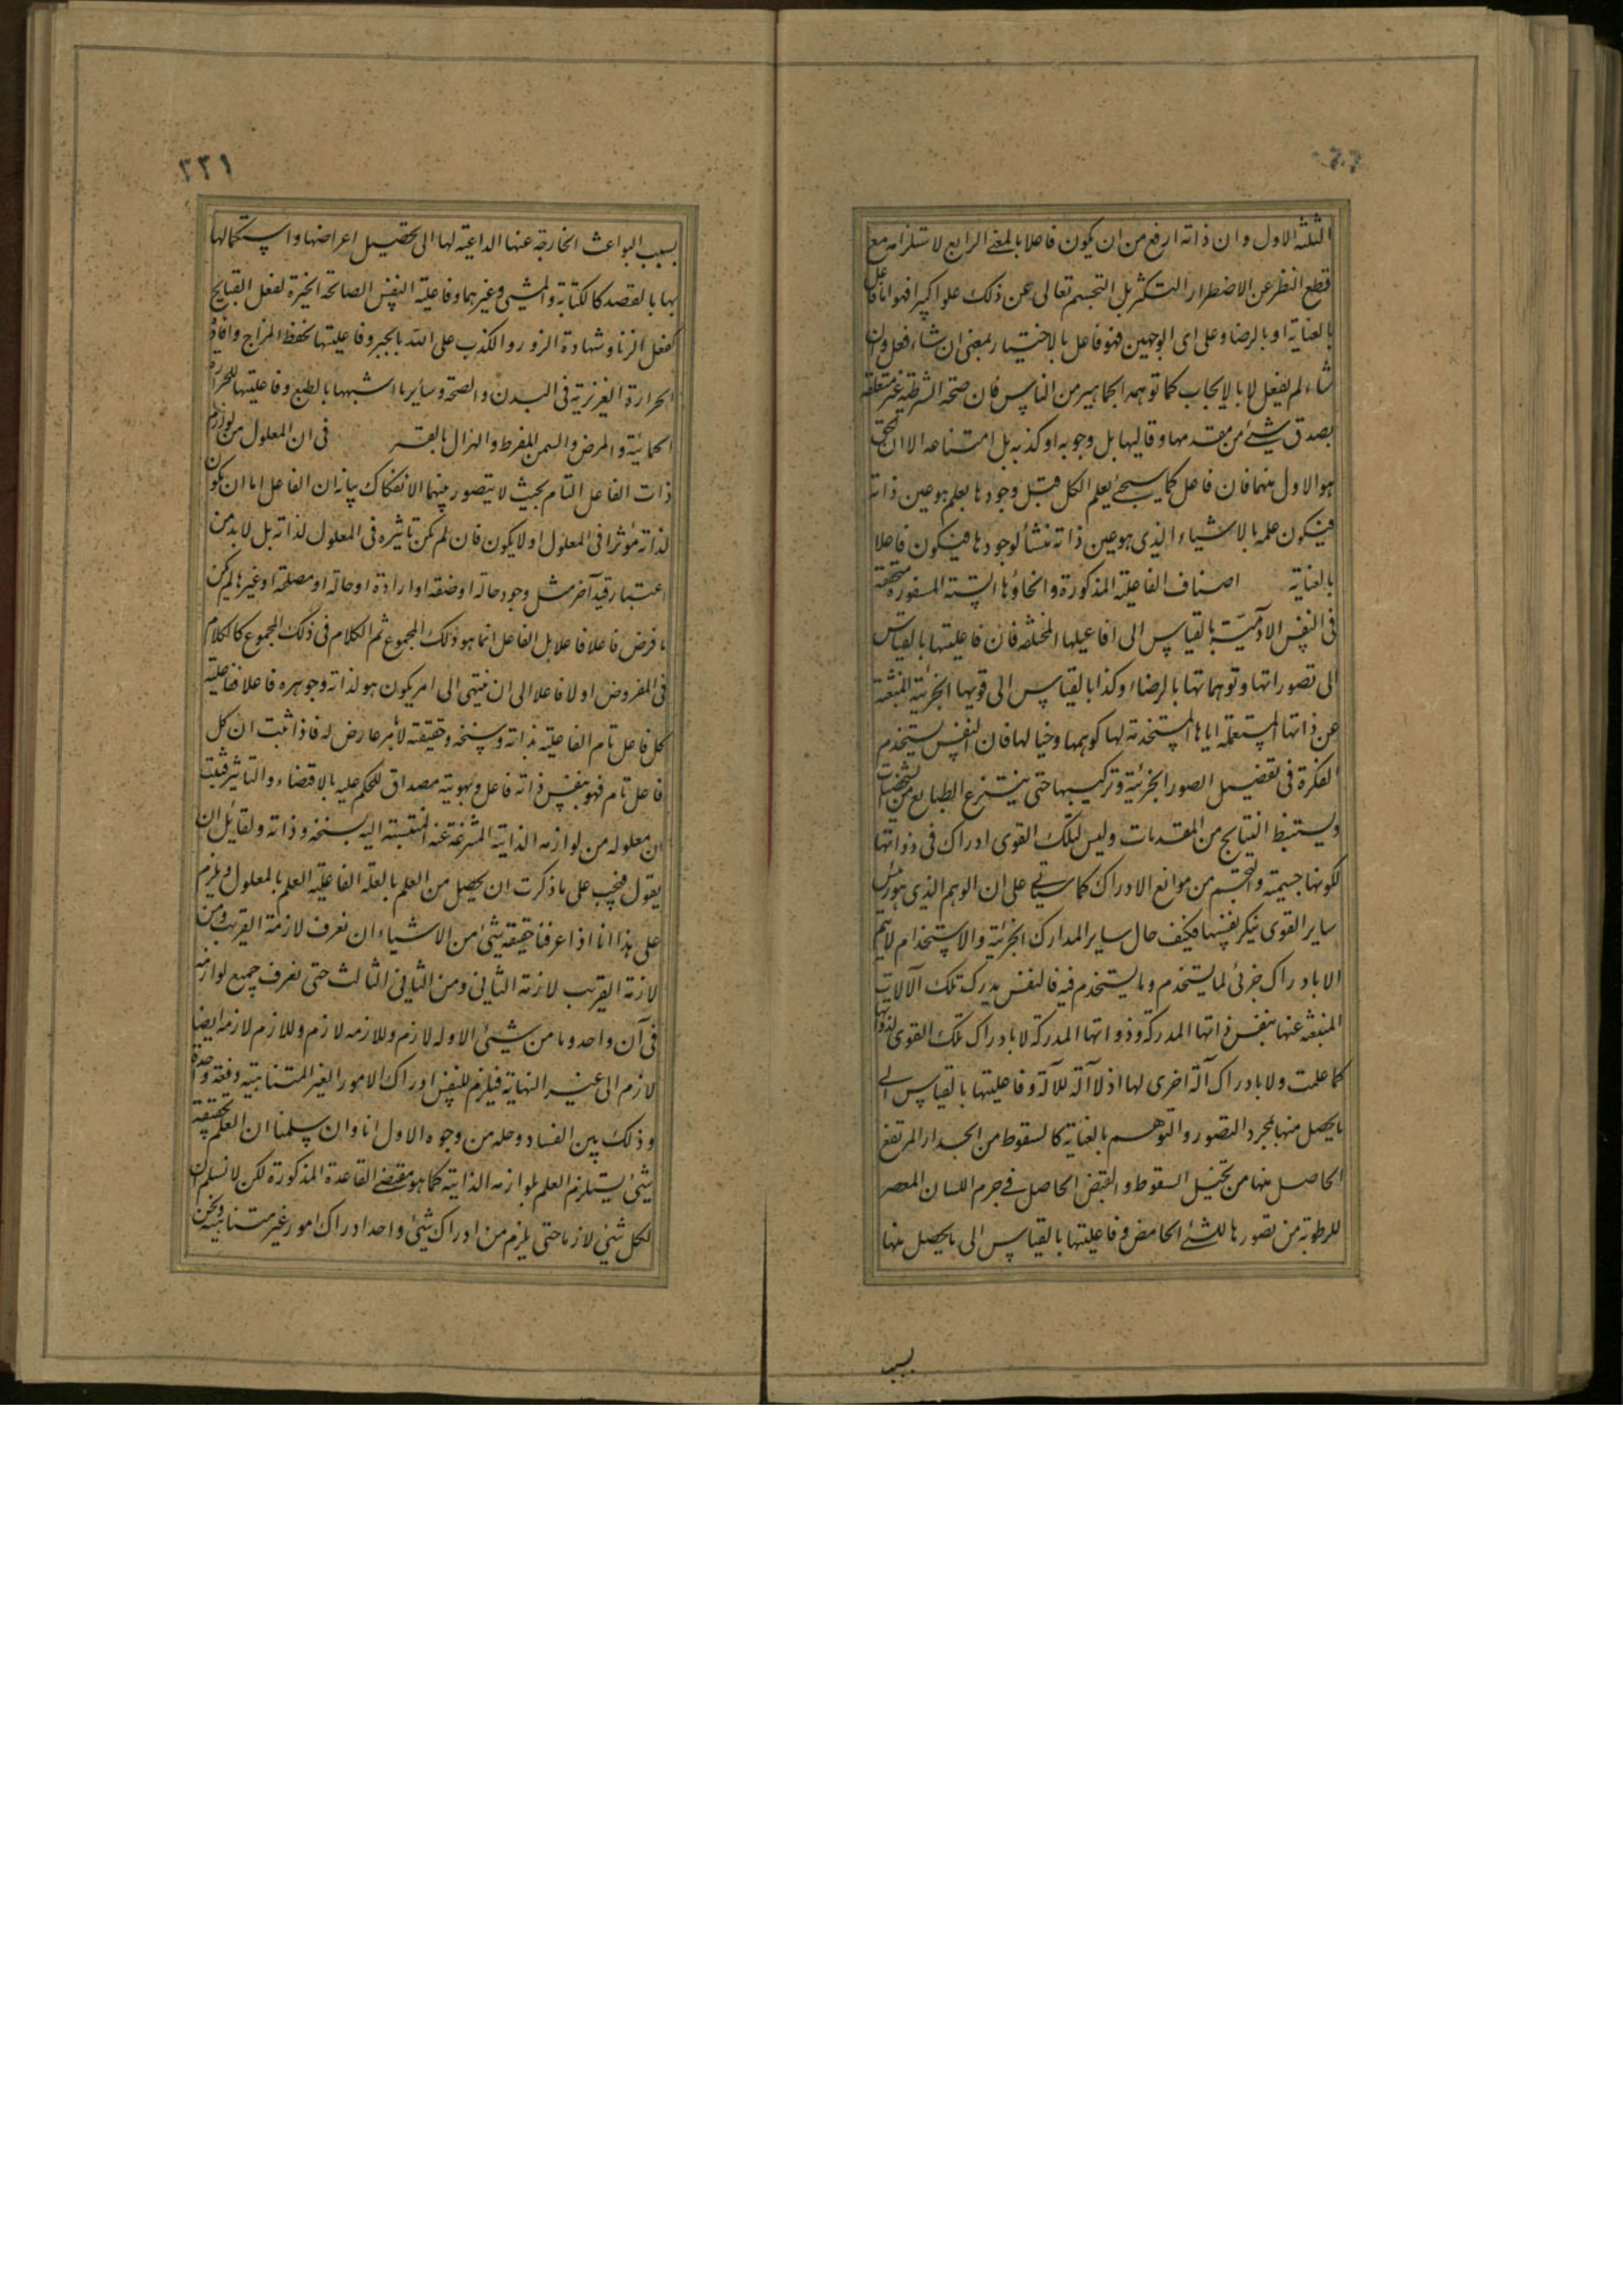 الثلثة الاول وان ذاته ارفع من ان يكون فاعلا بالمعنى الرابع لاستلزامه مع
قطع النظر عن الاضطرار التكثر بل التجسم تعالى عن ذلك علوا كبيرا فهو اما فاعل
بالعناية او بالرضا و على اى الوجهين فهو فاعل بالاختيار بمعنى ان شاء فعل وان
شاء لم يفعل لا بالايجاب كما توهمه الجماهير من الناس فان صحة الشرطية غير متعلقة
بصدق شئ من مقدمها و تاليها بل وجوبه او كذبه بل امتناعه الا ان الحق
هو الاول منهما فان فاعل كما سيجئ يعلم الكل قبل وجودها بعلم هو عين ذاته
فيكون علمه بالاشياء الذى هو عين ذاته منشأ لوجودها فيكون فاعلا
بالعناية اصناف الفاعلية المذكورة وانحاؤها الستة المسفورة متحققة
فى النفس الادمية بالقياس الى افاعيلها المختلفة فان فاعليتها بالقياس
الى تصوراتها وتوهماتها بالرضاء وكذا بالقياس الى قويها الجزئية المنبثة
عن ذاتها المستعملة اياها المستخدمة لها كوهمها وخيالها فان النفس يستخدم
الفكرة فى تفصيل الصور الجزئية وتركيبها حتى ينتزع الطبايع من الشخصيات
ويستنبط النتايج من المقدمات وليس لتلك القوى ادراك فى ذواتها
لكونها جسيمة والتجسم من موانع الادراك كما سياتى على ان الوهم الذى هو رئيس
ساير القوى ينكر نفسها فكيف حال ساير المدارك الجزئية والاستخدام لا يتم
الا بادراك جزئى لما يستخدم وما يستخدم فيه فالنفس يدرك تلك الالات
المنبعثة عنها بنفس ذاتها المدركة وذواتها المدركة لا بادراك تلك القوى لذواتها
كما علمت ولا بادراك آلة اخرى لها اذ لا آلة للآلة وفاعليتها بالقياس الى
ما يحصل منها بمجرد التصور والتوهم بالعناية كالسقوط من الجدار المرتفع
الحاصل منها من تخيل السقوط والقبض الحاصل فى جرم اللسان المعصر
للرطوبة من تصورها للشئ الحامض وفاعليتها بالقياس الى ما يحصل منها
بسبب
٢٢١
بسبب البواعث الخارجة عنها الداعية لها الى تحصيل اعراضها واستكمالها
بها بالقصد كالكتابة والمشى وغيرهما وفاعلية النفس الصالحة الخيرة لفعل القبايح
كفعل الزنا وشهادة الزور والكذب على الله بالجبر وفاعليتها بحفظ المزاج وافادة
الحرارة الغريزية فى البدن والصحة وساير ما اشبهها بالطبع وفاعليتها للحرارة
الحمائية والمرض والسمن المفرط والهزال بالقسر فى ان المعلول من لوازم
ذات الفاعل التام بحيث لا يتصور بينهما الانفكاك بيانه ان الفاعل اما ان يكون
لذاته مؤثرا فى المعلول او لا يكون فان لم يكن تاثيره فى المعلول لذاته بل لا بد من
اعتبار قيد آخر مثل وجود حالة او صفة او ارادة او حالة او مصلحة او غيرها لم يكن
ما فرض فاعلا فاعلا بل الفاعل انما هو ذلك المجموع ثم الكلام فى ذلك المجموع كالكلام
فى المفروض اولا فاعلا الى ان ينتهى الى امر يكون هو لذاته وجوهره فاعلا ففاعلية
كل فاعل تام الفاعلية بذاته وسنخه وحقيقته لا بامر عارض له فاذا ثبت ان كل
فاعل تام فهو بنفس ذاته فاعل وبهويته مصداق للحكم عليه بالاقتضاء والتاثير فثبت
ان معلوله من لوازمه الذاتية المنتزعة عنه المنتسبة اليه بسنخه وذاته ولقايل ان
يقول فيجب على ما ذكرت ان يحصل من العلم بالعلة الفاعلية العلم بالمعلول ويلزم
على هذا انا اذا عرفنا حقيقة شئ من الاشياء ان نعرف لازمة القريب ومن
لازمة القريب لازمة الثانى ومن الثانى الثالث حتى نعرف جميع لوازمه
فى آن واحد وما من شئ الا وله لازم وللازمه لازم وللازم لازمه ايضا
لازم الى غير النهاية فيلزم للنفس ادراك الامور الغير المتناهية دفعة واحدة
وذلك بين الفساد وحله من وجوه الاول انا وان سلمنا ان العلم بحقيقة
شئ يستلزم العلم بلوازمه الذاتية كما هو مقتضى القاعدة المذكورة لكن لا نسلم ان
لكل شئ لازما حتى يلزم من ادراك شئ واحد ادراك امور غير متناهية ونحن